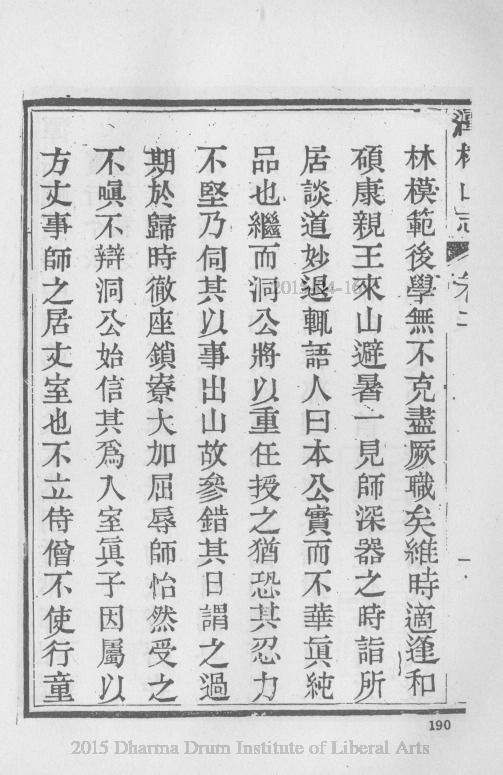 潭柘山志 卷二
林模範後學無不克盡厥職矣維時適逢和
碩康親王來山避暑一見師深器之時詣所
居談道妙退輒語人曰本公實而不華眞純
品也繼而洞公將以重任授之猶恐其忍力
不堅乃伺其以事出山故參錯其日謂之過
期於歸時徹座鎖寮大加屈辱師怡然受之
不嗔不辯洞公始信其爲入室眞子因屬以
方丈事師之居丈室也不立侍僧不使行童
190
2015 Dharma Drum Institute of Liberal Arts